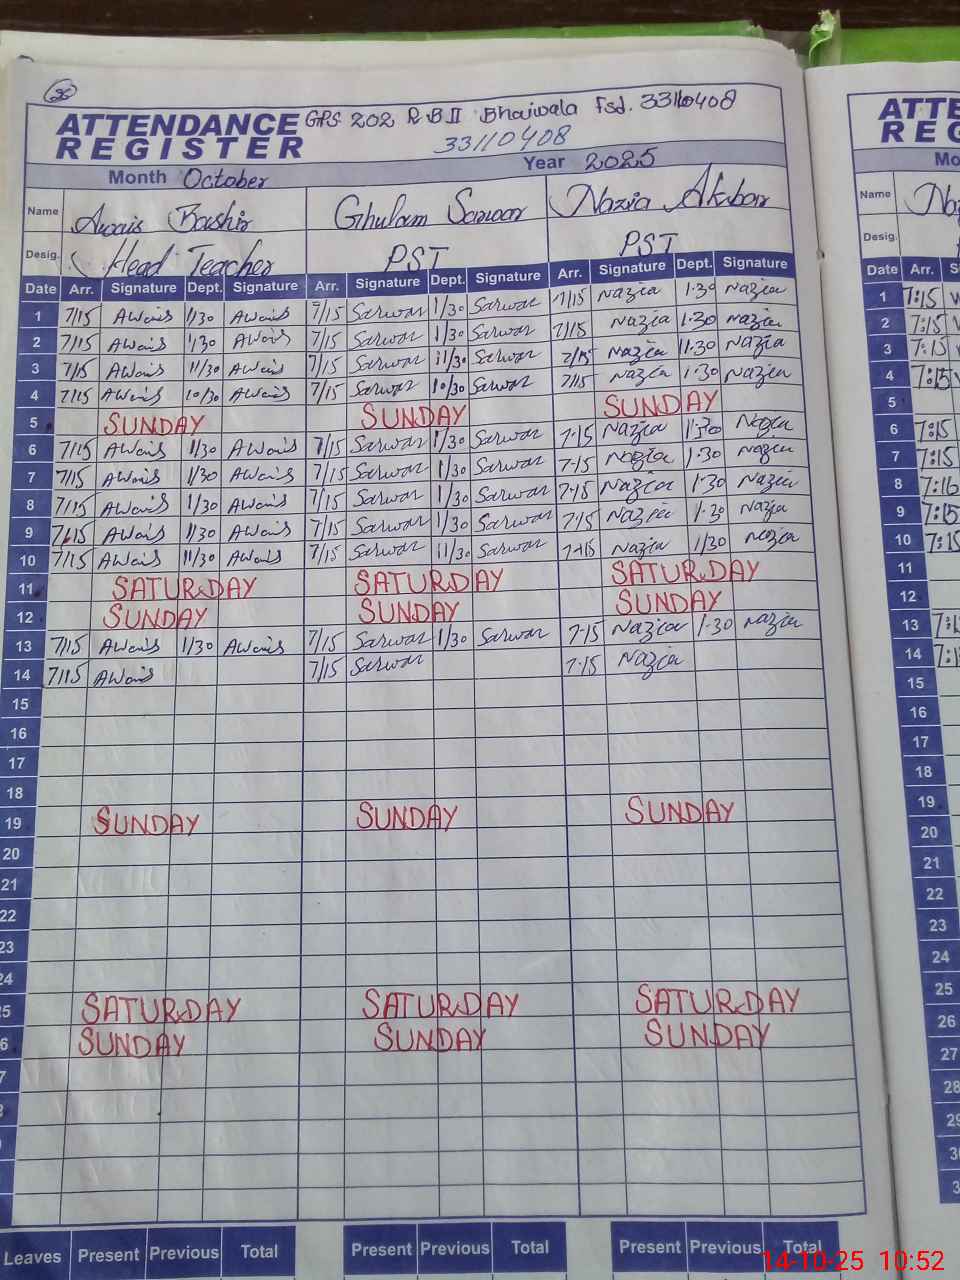 36
ATTENDANCE REGISTER
GPS 202 R.B II Bhaiwala Fsd. 33110408
33110408
Month October Year 2025
Name Awais Bashir Ghulam Sarwar Nazia Akbar
Desig. Head Teacher PST PST
Date Arr. Signature Dept. Signature Arr. Signature Dept. Signature Arr. Signature Dept. Signature
1 7/15 Awais 1/30 Awais 7/15 Sarwar 1/30 Sarwar 7/15 Nazia 1.30 Nazia
2 7/15 Awais 1/30 Awais 7/15 Sarwar 1/30 Sarwar 7/15 Nazia 1.30 Nazia
3 7/15 Awais 11/30 Awais 7/15 Sarwar 11/30 Sarwar 7/15 Nazia 11.30 Nazia
4 7/15 Awais 10/30 Awais 7/15 Sarwar 10/30 Sarwar 7/15 Nazia 1.30 Nazia
5 SUNDAY SUNDAY SUNDAY
6 7/15 Awais 1/30 Awais 7/15 Sarwar 1/30 Sarwar 7.15 Nazia 1.30 Nazia
7 7/15 Awais 1/30 Awais 7/15 Sarwar 1/30 Sarwar 7.15 Nazia 1.30 Nazia
8 7/15 Awais 1/30 Awais 7/15 Sarwar 1/30 Sarwar 7.15 Nazia 1.30 Nazia
9 7/15 Awais 1/30 Awais 7/15 Sarwar 1/30 Sarwar 7.15 Nazia 1.30 Nazia
10 7/15 Awais 11/30 Awais 7/15 Sarwar 11/30 Sarwar 7.15 Nazia 1/30 Nazia
11 SATURDAY SATURDAY SATURDAY
12 SUNDAY SUNDAY SUNDAY
13 7/15 Awais 1/30 Awais 7/15 Sarwar 1/30 Sarwar 7.15 Nazia 1.30 Nazia
14 7/15 Awais 7/15 Sarwar 7.15 Nazia
15
16
17
18
19 SUNDAY SUNDAY SUNDAY
20
21
22
23
24
5 SATURDAY SATURDAY SATURDAY
6 SUNDAY SUNDAY SUNDAY
7
Leaves Present Previous Total Present Previous Total Present Previous Total
ATTE
REG
Mo
Name Naz
Desig.
Date Arr. S
1 7:15
2 7:15
3 7:15
4 7:15
5
6 7:15
7 7:15
8 7:16
9 7:15
10 7:15
11
12
13 7:1
14 7:1
15
16
17
18
19
20
21
22
23
24
25
26
27
28
29
3
3
14-10-25 10:52